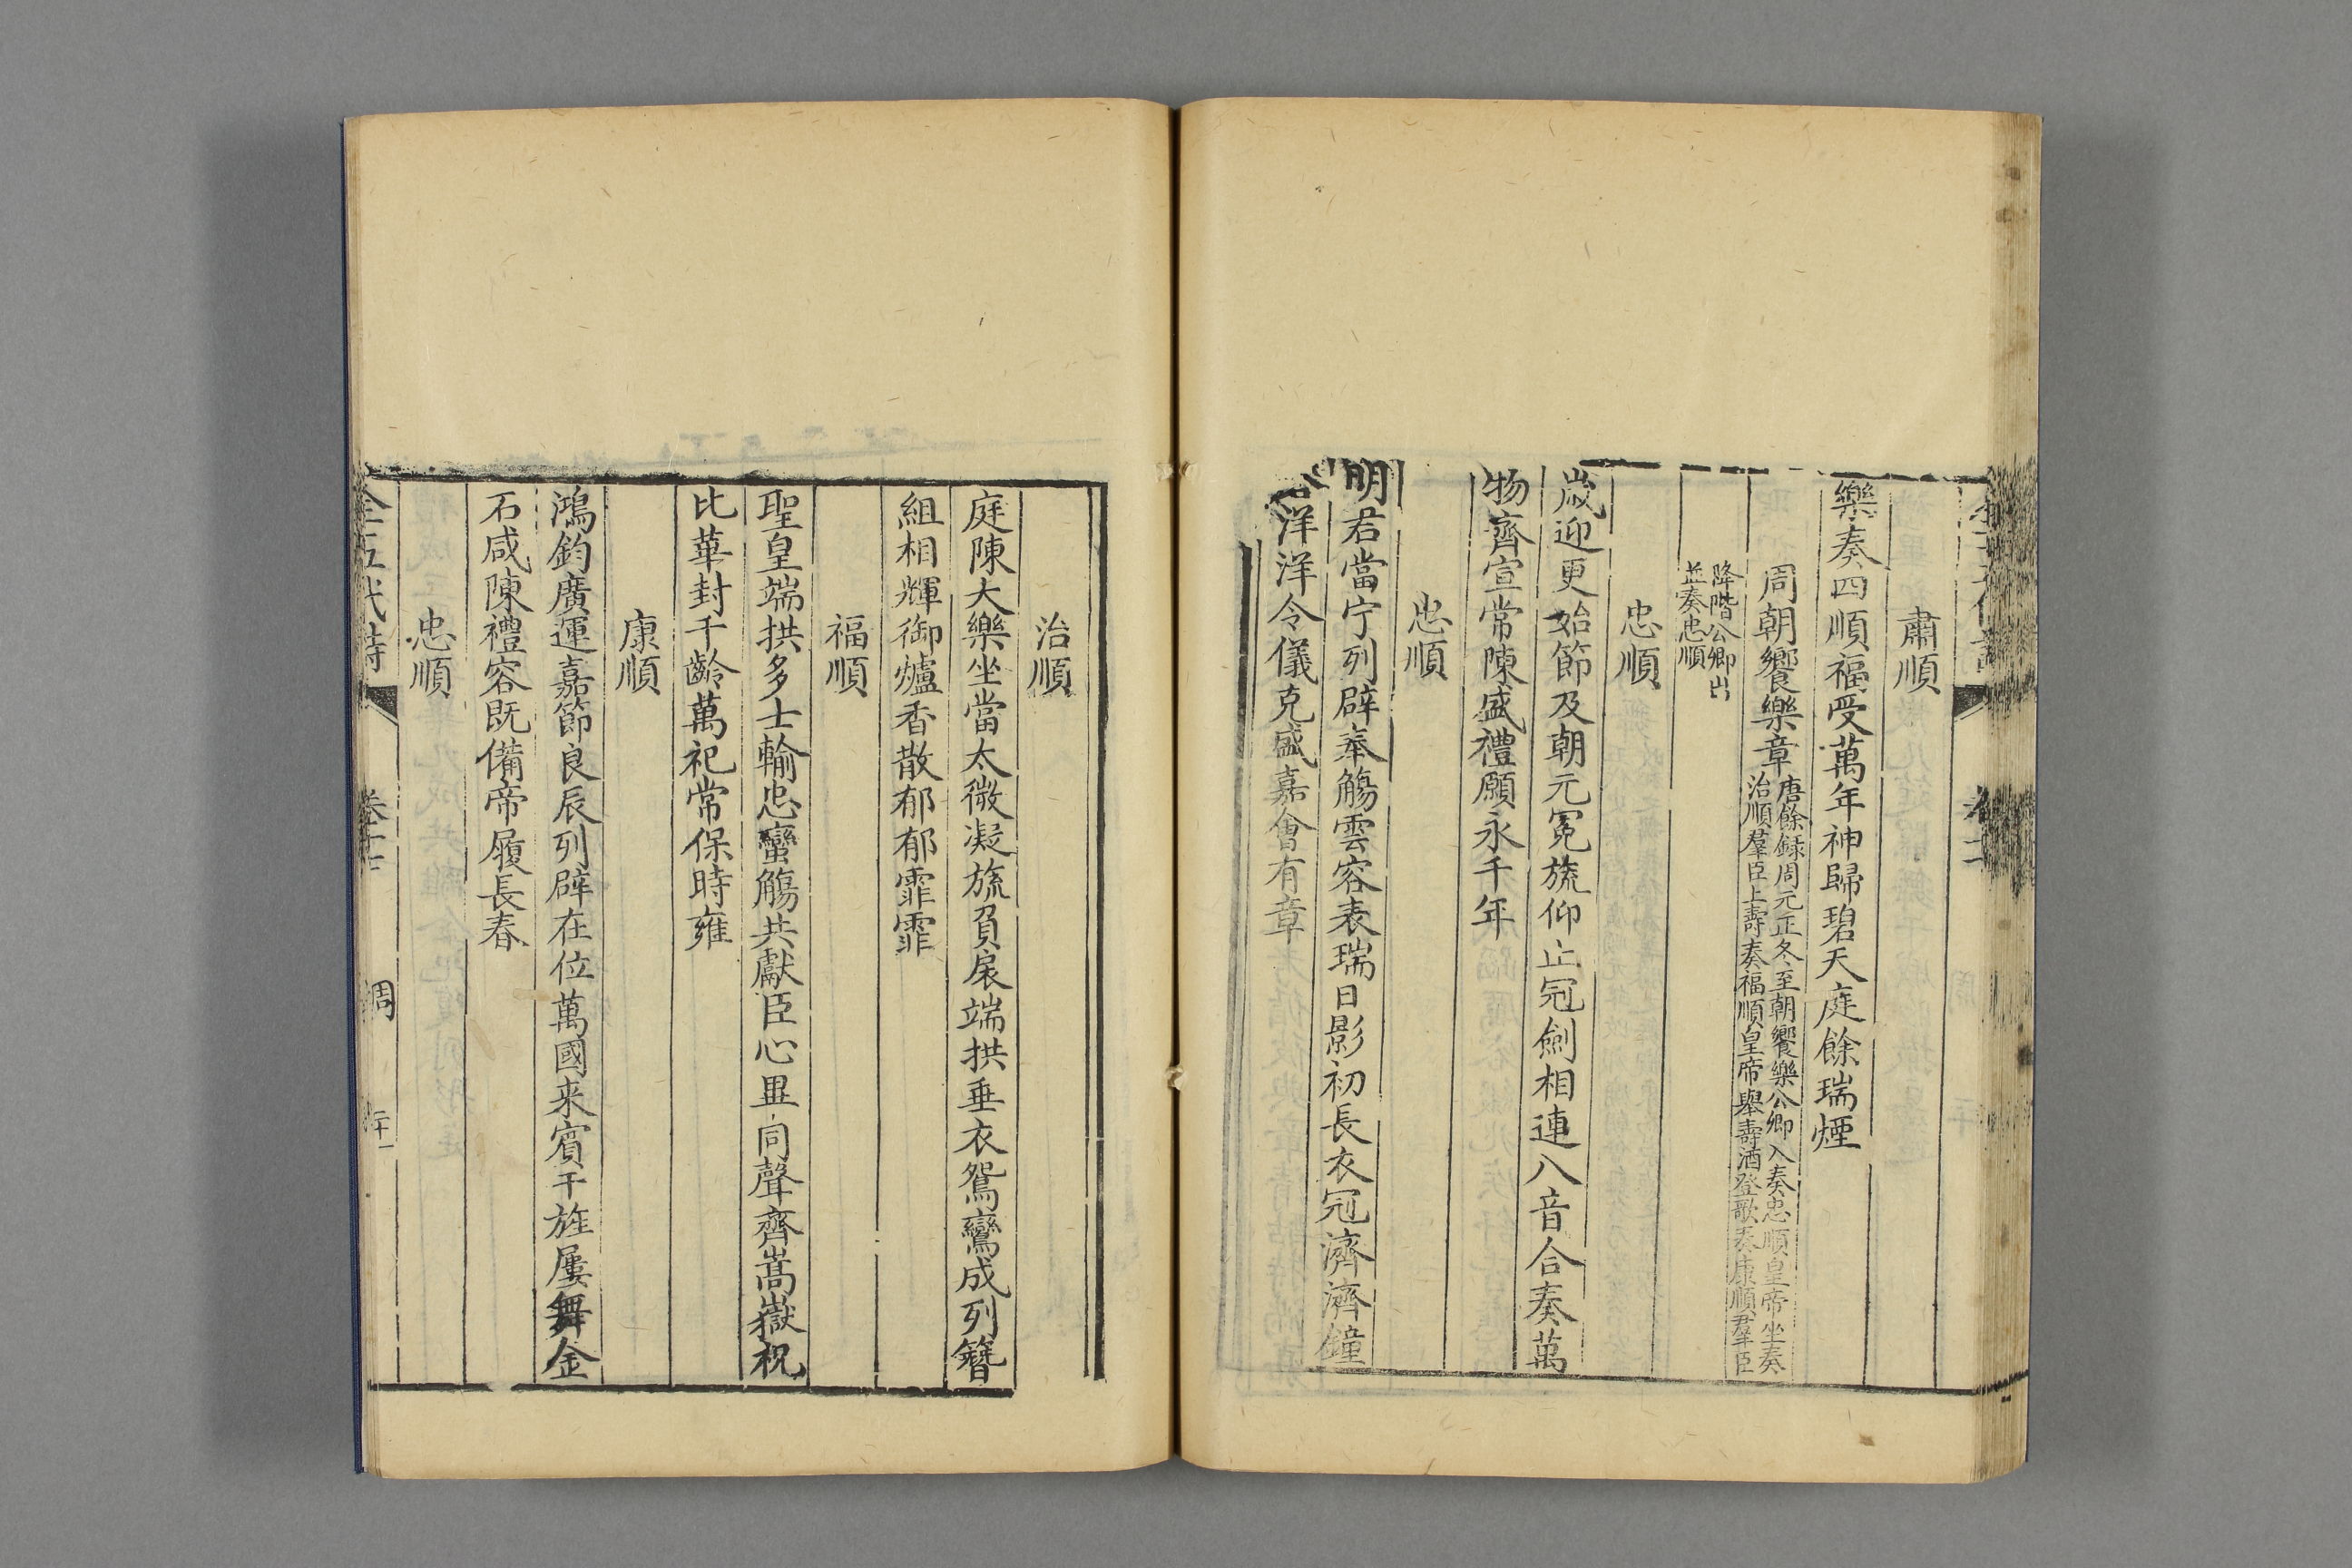 肅順
樂奏四順福受萬年神歸碧天庭餘瑞煙
周朝饗樂章
唐餘録周元正冬至朝饗樂公卿入奏忠順皇帝坐奏
治順羣臣上壽奏福順皇帝舉壽酒登歌奏康順羣臣
降階公卿出
並奏忠順
忠順
歲迎更始節及朝元冕旒仰止冠劍相連八音合奏萬
物齊宣常陳盛禮願永千年
忠順
明君當宁列辟奉觴雲容表瑞日影初長衣冠濟濟鐘
洋洋令儀克盛嘉會有章
治順
庭陳大樂坐當太微凝旒負扆端拱垂衣鴛鸞成列簪
組相輝御爐香散郁郁霏霏
福順
聖皇端拱多士輸忠蠻觴共獻臣心畢同聲齊嵩嶽祝
比華封千齡萬祀常保時雍
康順
鴻鈞廣運嘉節良辰列辟在位萬國来賓干旌屢舞金
石咸陳禮容既備帝履長春
忠順
全五代詩 卷十二 周